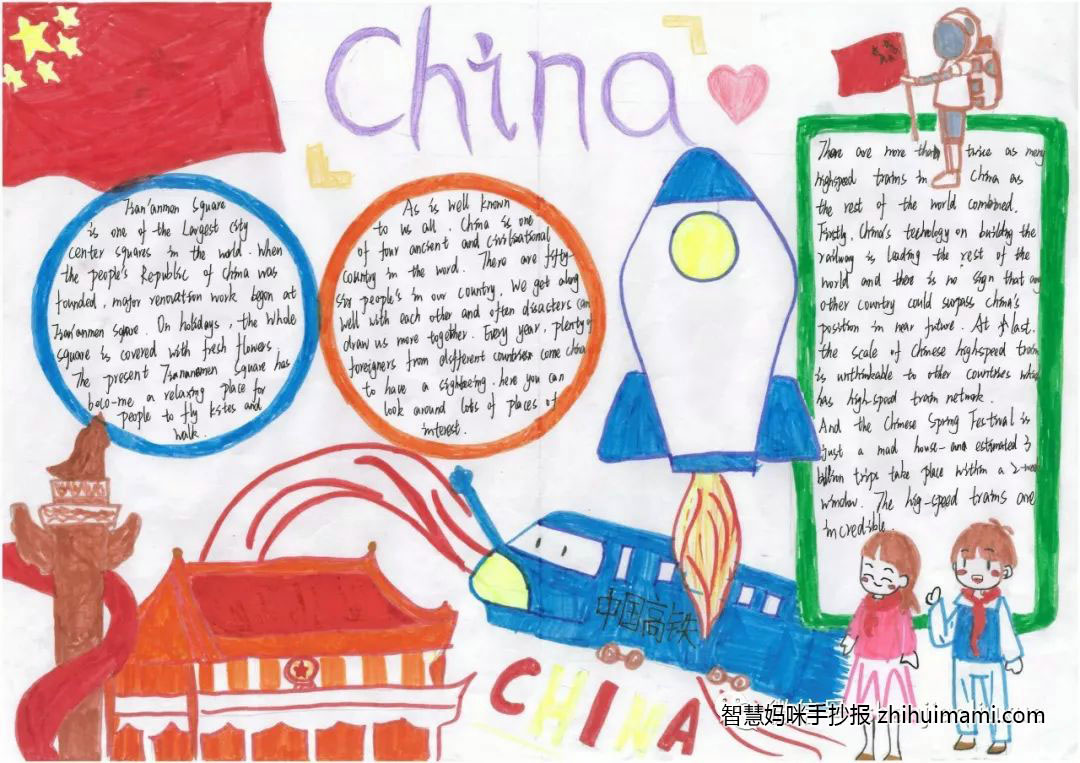 China
Tian'anmen Square
is one of the Largest city
center squares in the world. When
the people's Republic of China was
founded, major renovation work began at
Tian'anmen Square. On holidays, the whole
square is covered with fresh flowers.
The present Tiananmen Square has
beco-me a relaxing place for
people to fly kites and
walk.
As is well known
to us all, China is one
of four ancient and civilisational
country in the word. There are fifty-
six people's in our country. We get along
well with each other and often disacters can
draw us more together. Every year, plenty of
foreigners from different countries come china
to have a sighteeing. here you can
look around lots of places of
interest.
There are more than twice as many
highspeed trains in China as
the rest of the world combined.
Firstly, China's technology on building the
railway is leading the rest of the
world and there is no sign that any
other country could surpass China's
position in near future. At last,
the scale of Chinese highspeed train
is unthinkable to other countries which
has high-speed train network.
And the Chinese Spring Festival is
just a mad house-and estimated 3
billion trips take place within a 2-week
window. The hig-speed trains are
incredible.
中国高铁
CHINA
智慧妈咪手抄报 zhihuimami.com